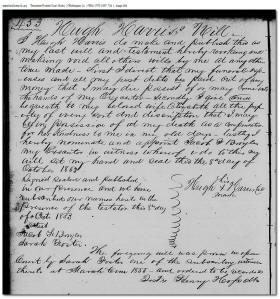 433 Hugh Harris' Will
I Hugh Harris do make and publish this as
my last will and testament hereby revoking and
making void all others wills by me at any
time made. First I direct that my funeral expen
ses and all my just debts be paid out of any
money that I may die possest of or may come into
the hands of my Executor. Secondly I give and
bequeath to my beloved wife all the prop
erty of every sort and description that I may
be in possession of at my death as a
for her kindness to me in my old days. Lastly I
hereby nominate and appoint Jacob F Broyles
my Executor in witness whereof I do to this my
will set my hand and seal this 8th day of
October 1853
Signed Sealed and published
in our presence and we have
subscribed our names hereto in the
presence of the testator this 8th day
of Oct. 1853
Hugh his Harris
mark
Attest
Jacob F. Broyles
Sarah
The foregoing will was proven in open
Court by Sarah one of the subscribing witness
thereto at March Term 1855 and ordered to be recorded
Henry Hoss Clk